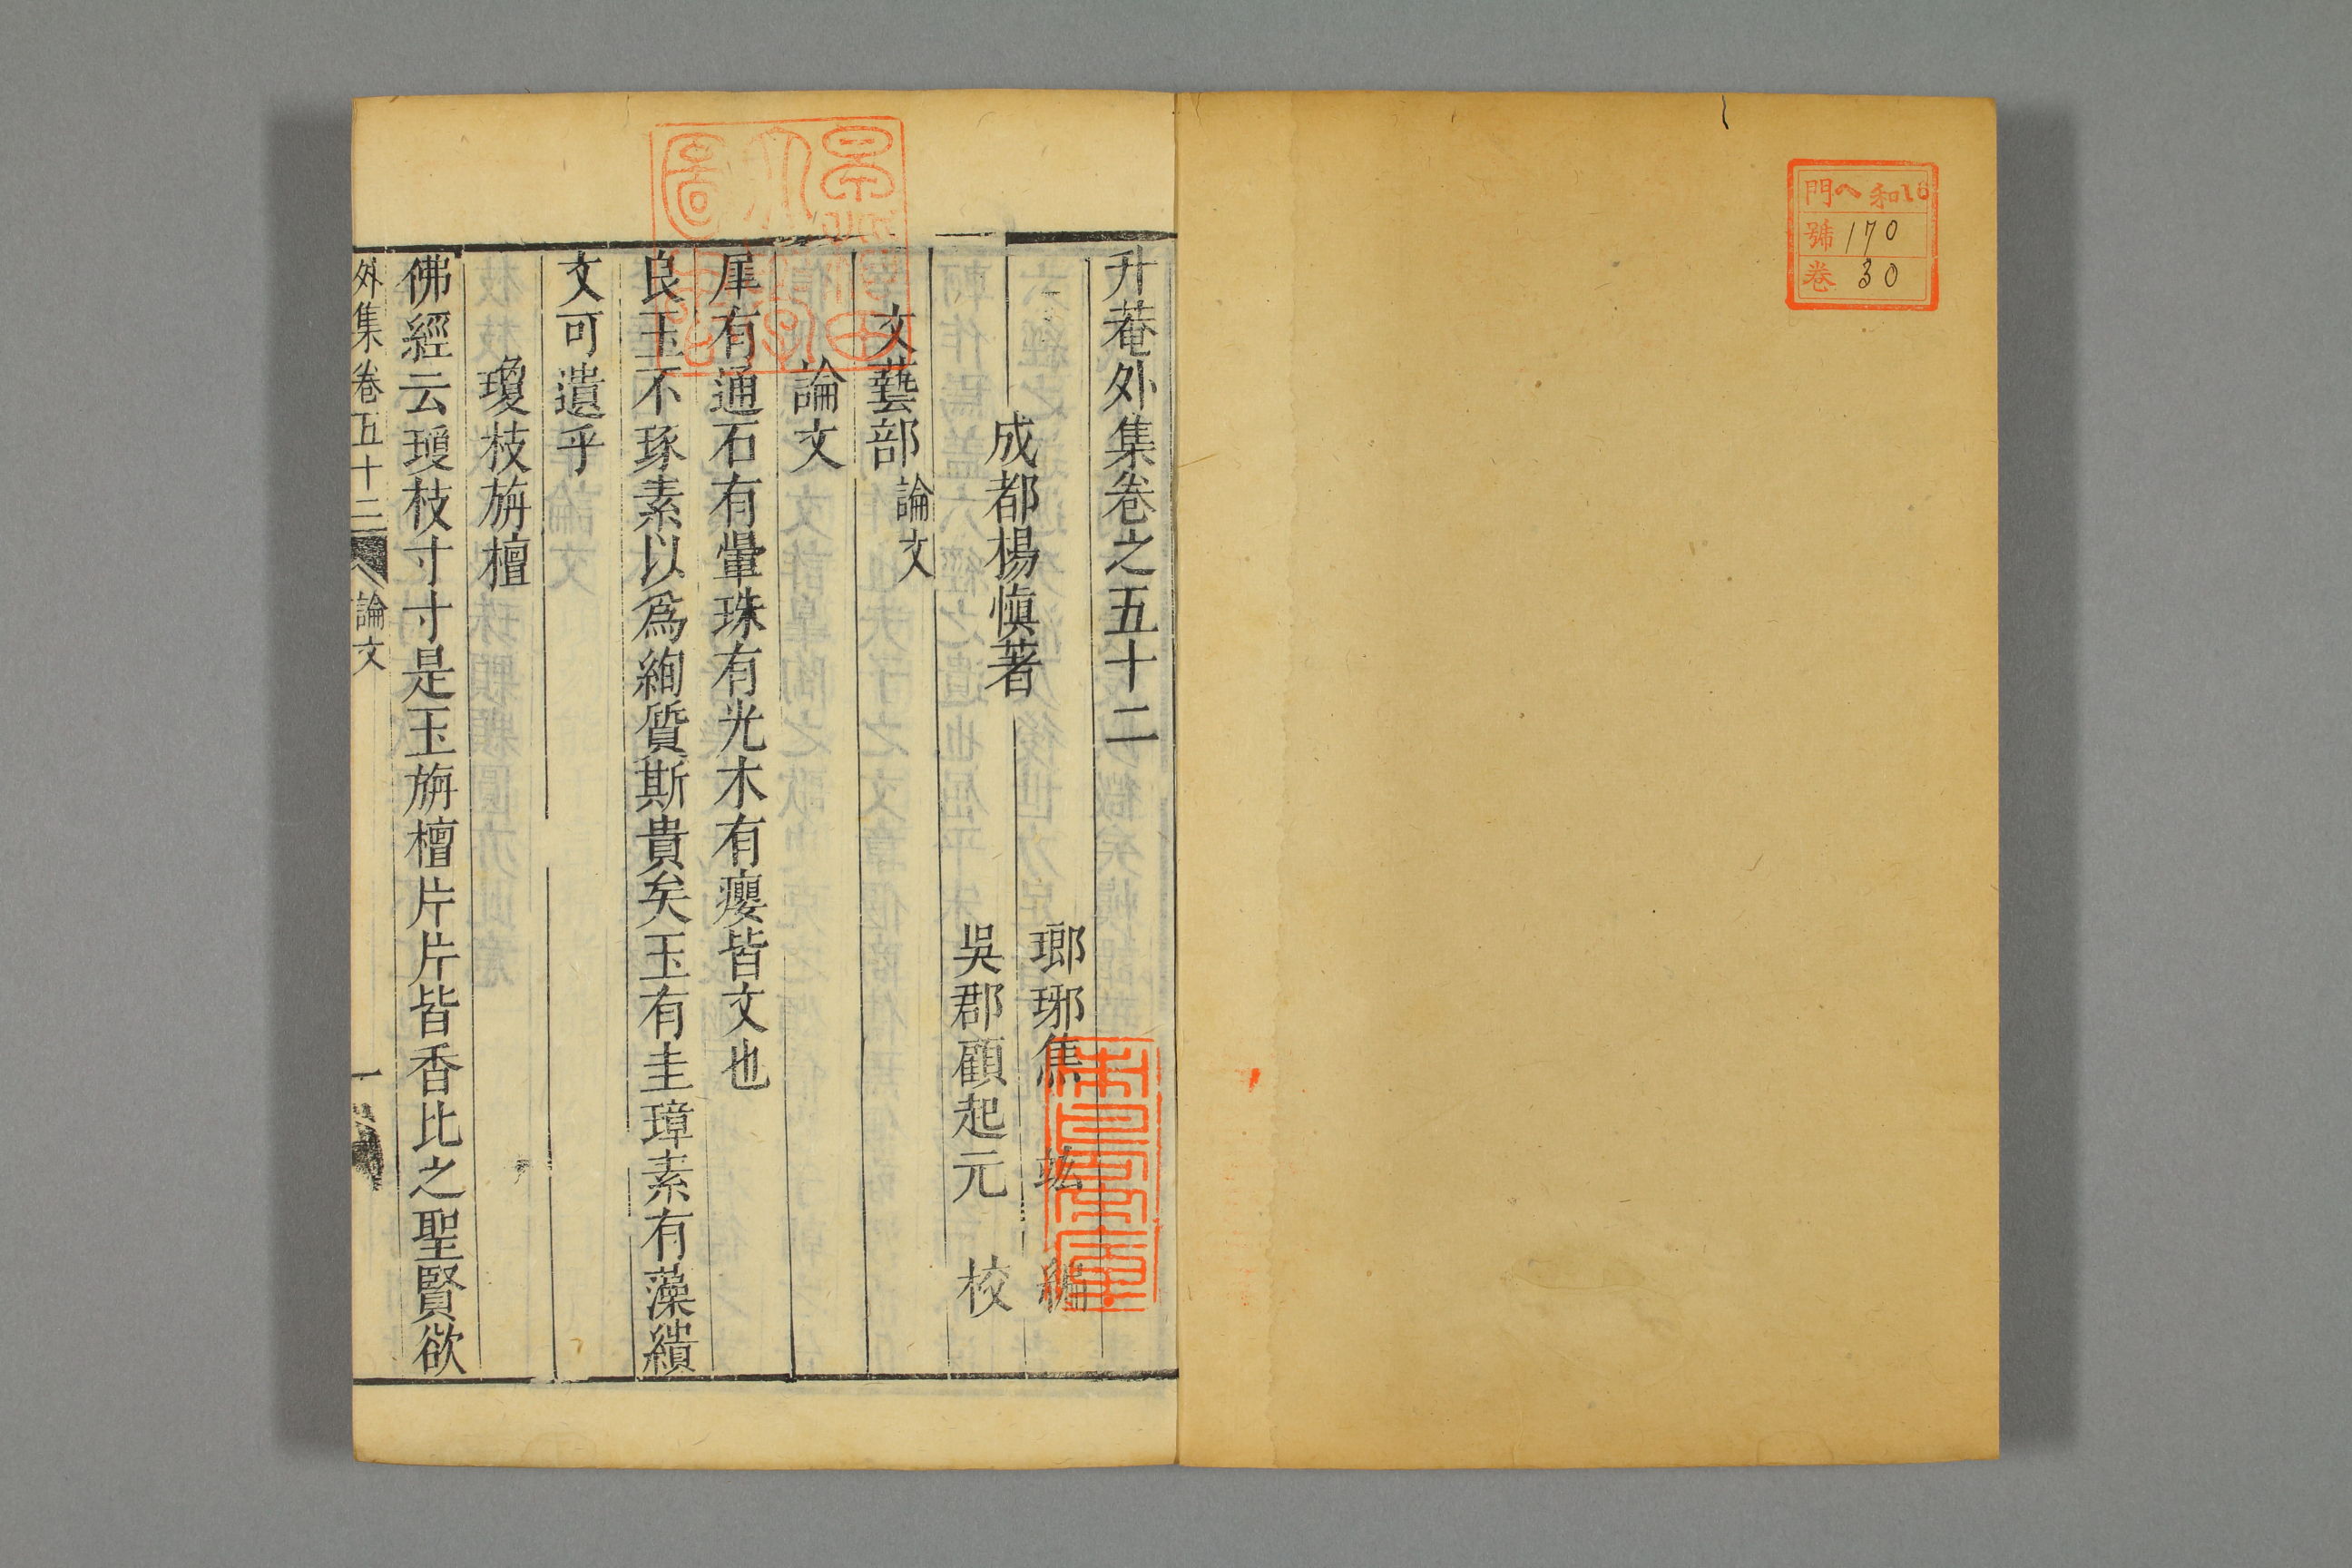 門ヘ和16
號170
卷30
升菴外集卷之五十二
成都楊慎著
瑯琊焦竑編
吳郡顧起元校
文藝部 論文
論文
犀有通石有暈珠有光木有癭皆文也
良玉不琢素以爲絢質斯貴矣玉有圭璋素有藻繢
文可遺乎
瓊枝旃檀
佛經云瓊枝寸寸是玉旃檀片片皆香比之聖賢欲
外集卷五十二 論文 一